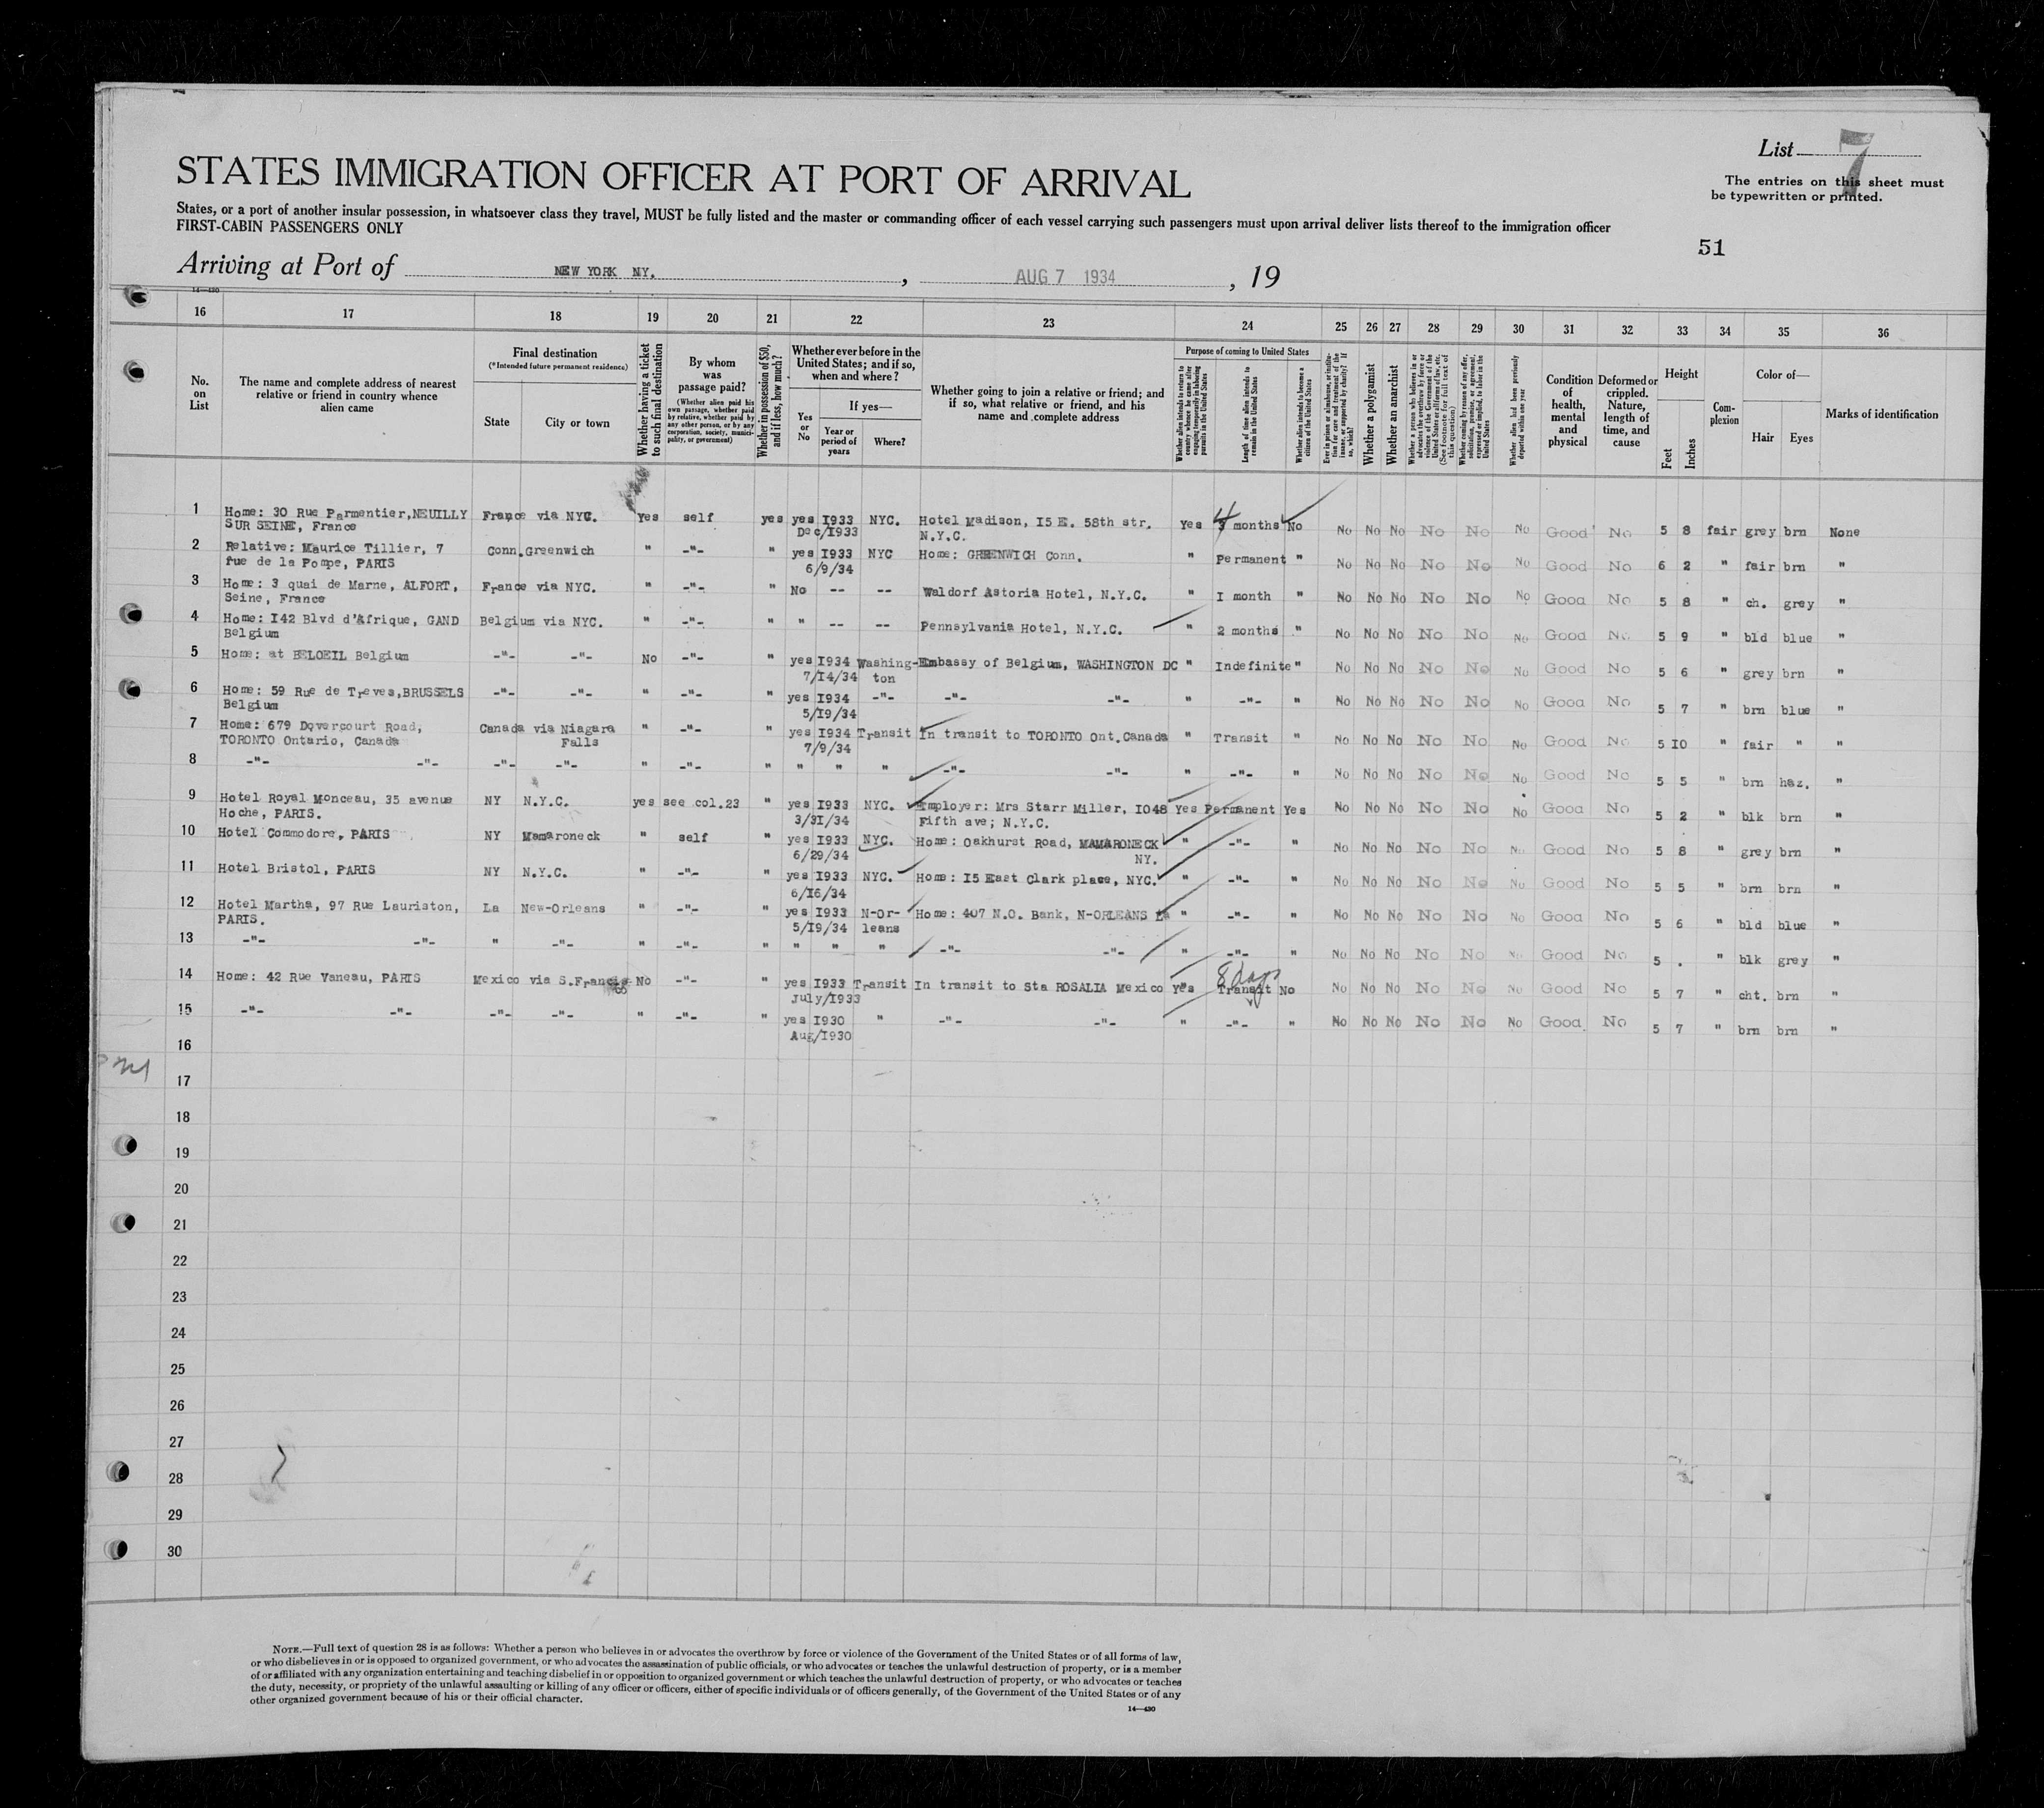 List 7
STATES IMMIGRATION OFFICER AT PORT OF ARRIVAL
The entries on this sheet must
be typewritten or printed.
States, or a port of another insular possession, in whatsoever class they travel, MUST be fully listed and the master or commanding officer of each vessel carrying such passengers must upon arrival deliver lists thereof to the immigration officer
FIRST-CABIN PASSENGERS ONLY
51
Arriving at Port of NEW YORK NY. , AUG 7 1934 , 19
14—430
16 17 18 19 20 21 22 23 24 25 26 27 28 29 30 31 32 33 34 35 36
No. on List
The name and complete address of nearest relative or friend in country whence alien came
Final destination
(*Intended future permanent residence)
State City or town
Whether having a ticket to such final destination
By whom was passage paid?
(Whether alien paid his own passage, whether paid by relative, whether paid by any other person, or by any corporation, society, municipality, or government)
Whether in possession of $50, and if less, how much?
Whether ever before in the United States; and if so, when and where?
Yes or No
If yes—
Year or period of years
Where?
Whether going to join a relative or friend; and if so, what relative or friend, and his name and complete address
Purpose of coming to United States
Whether alien intends to return to country whence he came after engaging temporarily in laboring pursuits in the United States
Length of time alien intends to remain in the United States
Whether alien intends to become a citizen of the United States
Ever in prison or almshouse, or institution for care and treatment of the insane, or supported by charity? If so, which?
Whether a polygamist
Whether an anarchist
Whether a person who believes in or advocates the overthrow by force or violence of the Government of the United States or all forms of law, etc. (See footnote for full text of this question)
Whether coming by reason of any offer, solicitation, promise, or agreement, expressed or implied, to labor in the United States
Whether alien had been previously deported within one year
Condition of health, mental and physical
Deformed or crippled. Nature, length of time, and cause
Height
Feet Inches
Complexion
Color of—
Hair Eyes
Marks of identification
1 Home: 30 Rue Parmentier,NEUILLY France via NYC. Yes self yes yes 1933 NYC. Hotel Madison, I5 E. 58th str. Yes 4 months No No No No No No No Good No 5 8 fair grey brn None
SUR SEINE, France Dec/1933 N.Y.C.
2 Relative: Maurice Tillier, 7 Conn.Greenwich " -"- " yes I933 NYC Home: GREENWICH Conn. " Permanent " No No No No No No Good No 6 2 " fair brn "
rue de la Pompe, PARIS 6/9/34
3 Home: 3 quai de Marne, ALFORT, France via NYC. " -"- " No -- -- Waldorf Astoria Hotel, N.Y.C. " I month " No No No No No No Good No 5 8 " ch. grey "
Seine, France
4 Home: I42 Blvd d'Afrique, GAND Belgium via NYC. " -"- " " -- -- Pennsylvania Hotel, N.Y.C. " 2 months " No No No No No No Good No 5 9 " bld blue "
Belgium
5 Home: at BELOEIL Belgium -"- -"- No -"- " yes I934 Washing- Embassy of Belgium, WASHINGTON DC " Indefinite " No No No No No No Good No 5 6 " grey brn "
7/14/34 ton
6 Home: 59 Rue de Treves,BRUSSELS -"- -"- " -"- " yes I934 -"- -"- -"- " -"- " No No No No No No Good No 5 7 " brn blue "
Belgium 5/I9/34
7 Home: 679 Dovercourt Road, Canada via Niagara " -"- " yes I934 Transit In transit to TORONTO Ont.Canada " Transit " No No No No No No Good No 5 IO " fair " "
TORONTO Ontario, Canada Falls 7/9/34
8 -"- -"- -"- -"- " -"- " " " " -"- -"- " -"- " No No No No No No Good No 5 5 " brn haz. "
9 Hotel Royal Monceau, 35 avenue NY N.Y.C. yes see col.23 " yes I933 NYC. Employer: Mrs Starr Miller, IO48 Yes Permanent Yes No No No No No No Good No 5 2 " blk brn "
Hoche, PARIS. 3/3I/34 Fifth ave; N.Y.C.
10 Hotel Commodore, PARIS NY Mamaroneck " self " yes I933 NYC. Home: Oakhurst Road, MAMARONECK " -"- " No No No No No No Good No 5 8 " grey brn "
6/29/34 NY.
11 Hotel Bristol, PARIS NY N.Y.C. " -"- " yes I933 NYC. Home: I5 East Clark place, NYC. " -"- " No No No No No No Good No 5 5 " brn brn "
6/I6/34
12 Hotel Martha, 97 Rue Lauriston, La New-Orleans " -"- " yes I933 N-Or- Home: 407 N.O. Bank, N-ORLEANS La " -"- " No No No No No No Good No 5 6 " bld blue "
PARIS. 5/I9/34 leans
13 -"- -"- " -"- " -"- " " " " -"- -"- " -"- " No No No No No No Good No 5 . " blk grey "
14 Home: 42 Rue Vaneau, PARIS Mexico via S.Francis No -"- " yes I933 Transit In transit to Sta ROSALIA Mexico Yes 8 days Transit No No No No No No No Good No 5 7 " cht. brn "
July/I933
15 -"- -"- -"- -"- " -"- " yes I930 " -"- -"- " -"- " No No No No No No Good No 5 7 " brn brn "
Aug/I930
16
17
18
19
20
21
22
23
24
25
26
27
28
29
30
NOTE.—Full text of question 28 is as follows: Whether a person who believes in or advocates the overthrow by force or violence of the Government of the United States or of all forms of law,
or who disbelieves in or is opposed to organized government, or who advocates the assassination of public officials, or who advocates or teaches the unlawful destruction of property, or is a member
of or affiliated with any organization entertaining and teaching disbelief in or opposition to organized government or which teaches the unlawful destruction of property, or who advocates or teaches
the duty, necessity, or propriety of the unlawful assaulting or killing of any officer or officers, either of specific individuals or of officers generally, of the Government of the United States or of any
other organized government because of his or their official character.
14—430